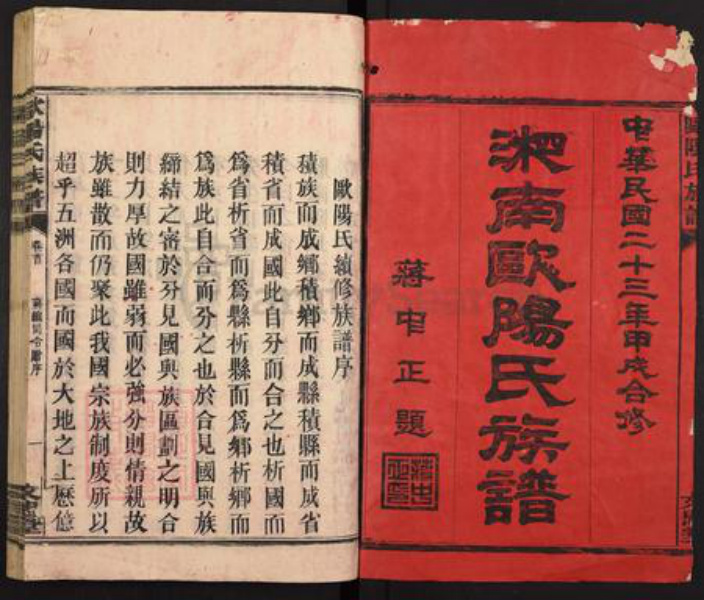 中華民國二十三年甲戌合修
湘南歐陽氏族譜
蔣中正題
蔣中正印
歐陽氏族譜
歐陽氏續修族譜序
積族而成鄉積鄉而成縣積縣而成省
積省而成國此自分而合之也析國而
爲省析省而爲縣析縣而爲鄉析鄉而
爲族此自合而分之也於合見國與族
締結之密於分見國與族區劃之明合
則力厚故國雖弱而必強分則情親故
族雖散而仍聚此我國宗族制度所以
超乎五洲各國而國於大地之上歷億
歐陽氏族譜
卷首
一